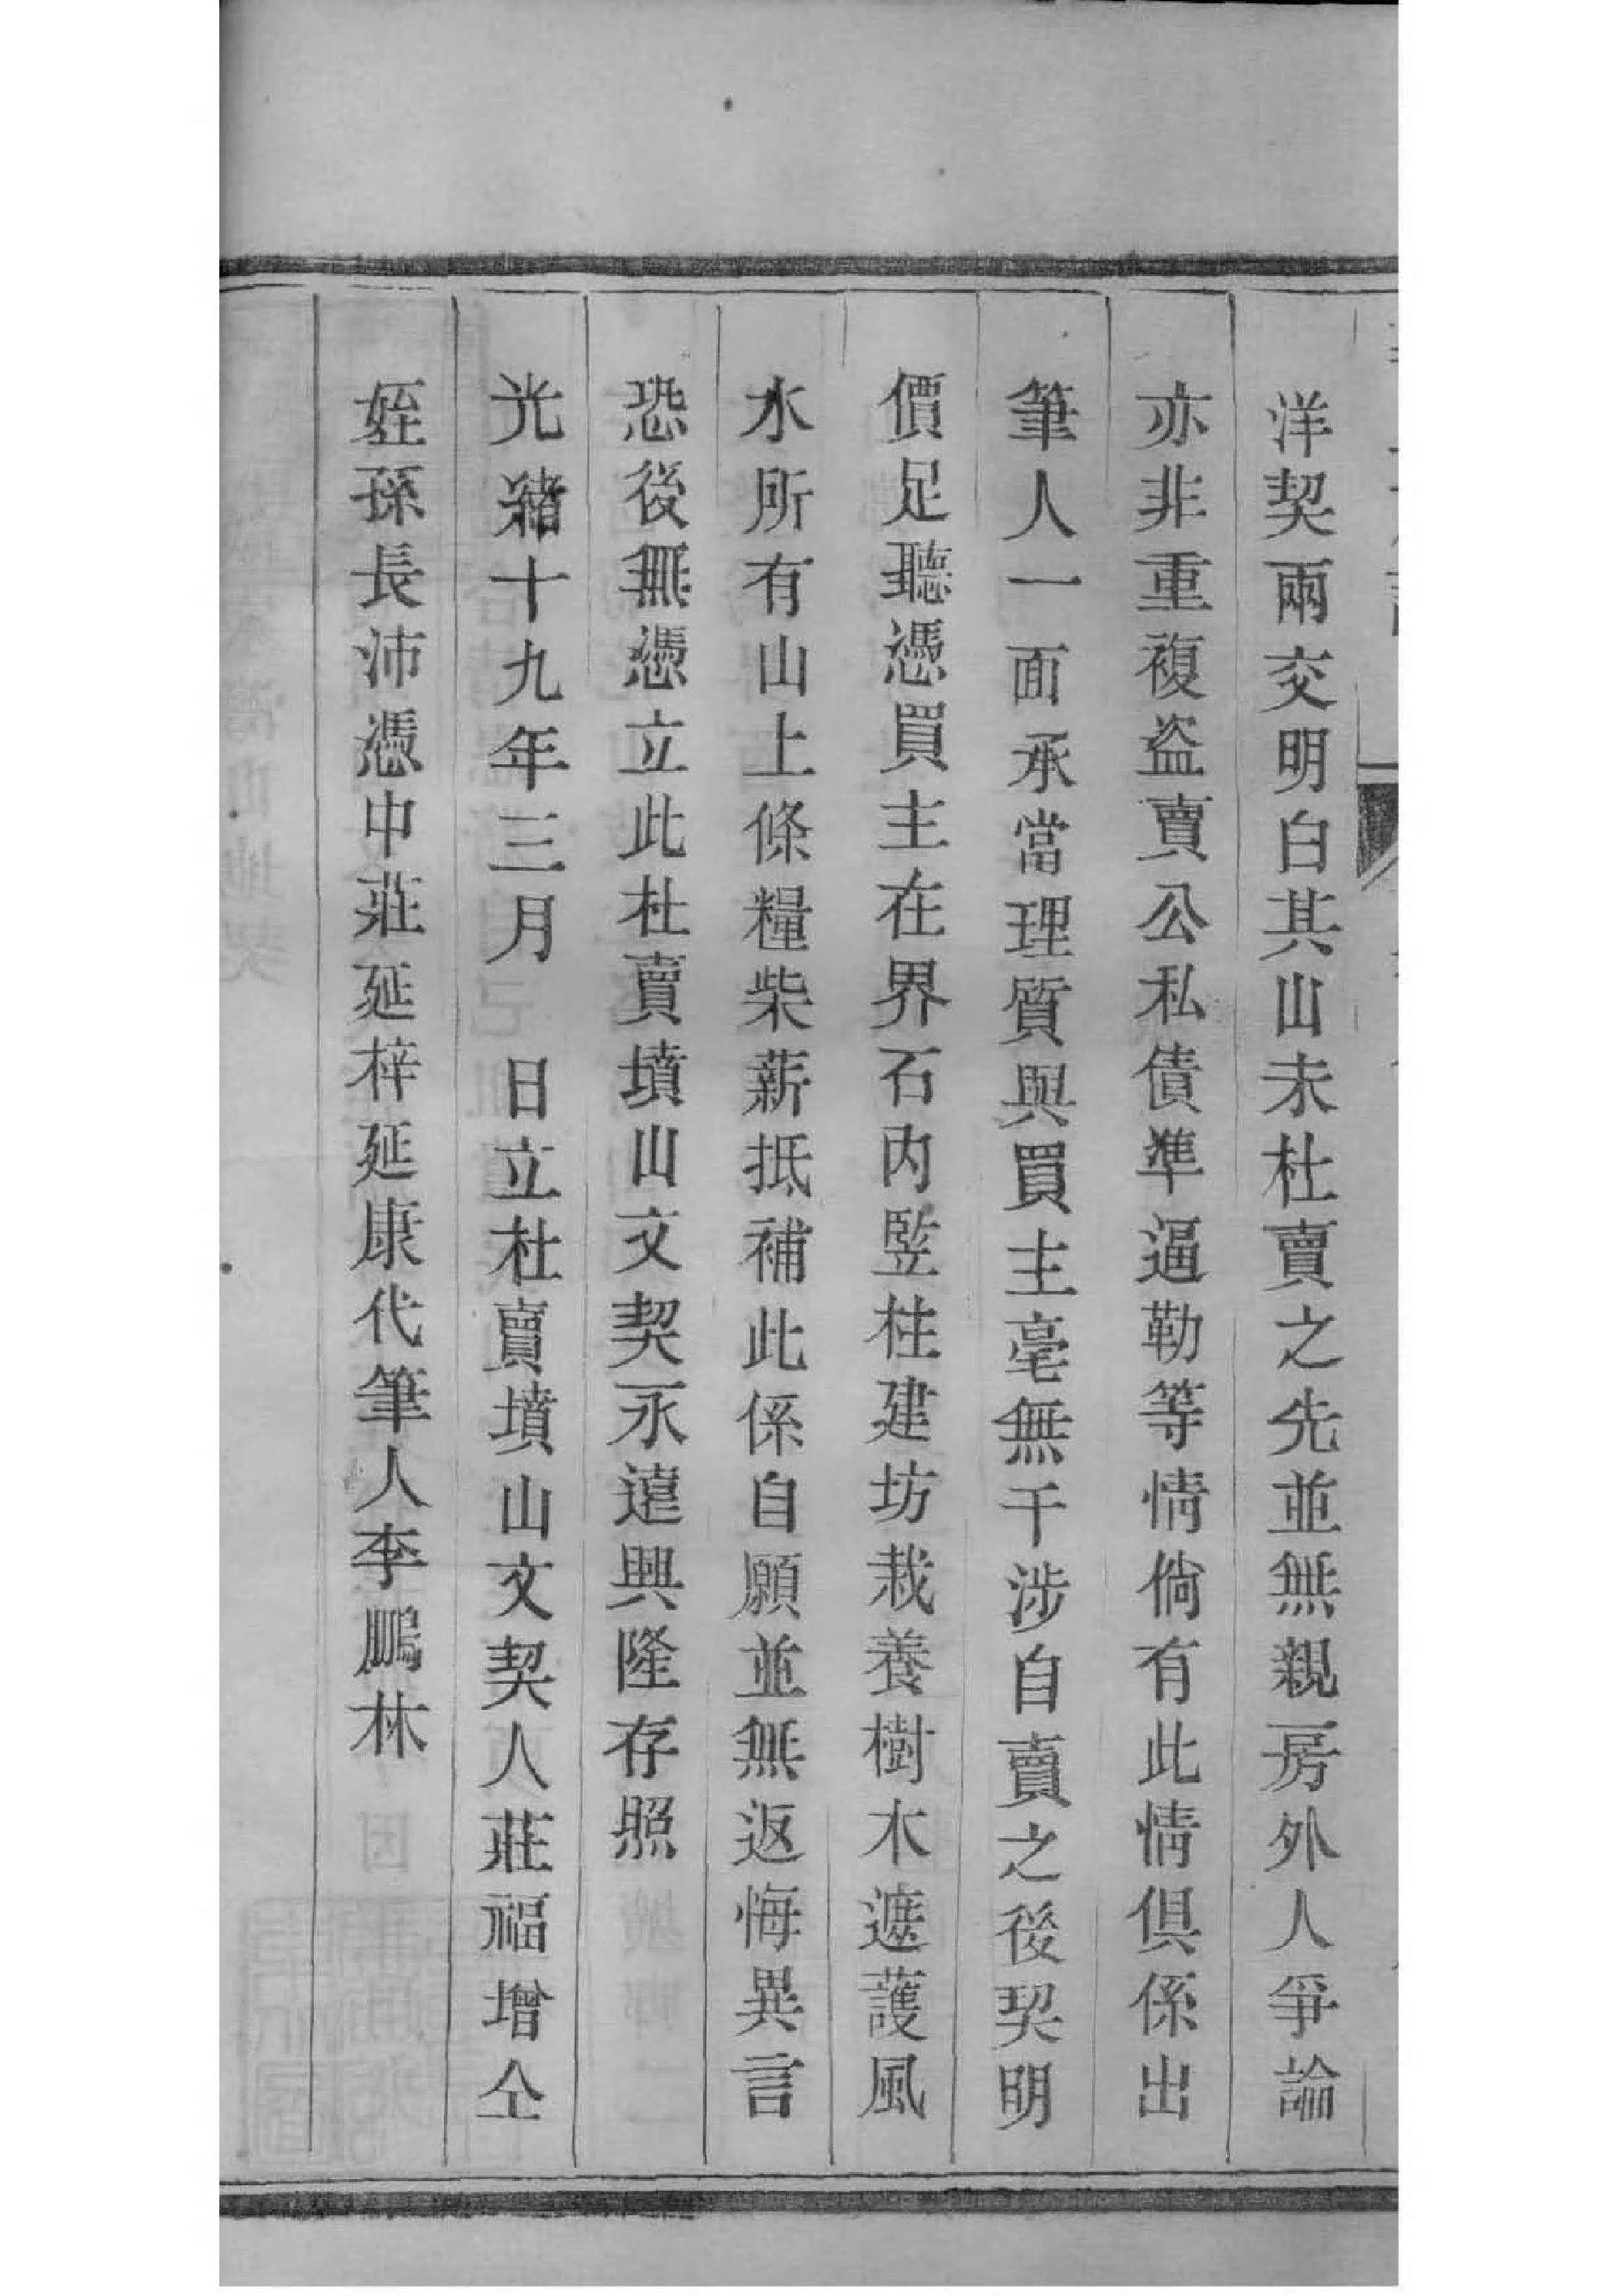 洋契兩交明白其山未杜賣之先並無親房外人爭論
亦非重複盗賣公私債準逼勒等情倘有此情俱係出
筆人一面承當理質與買主毫無干涉自賣之後契明
價足聽憑買主在界石内竪柱建坊栽養樹木遮護風
水所有山上條糧柴薪抵補此係自願並無返悔異言
恐後無憑立此杜賣墳山文契永遠興隆存照
光緒十九年三月　日立杜賣墳山文契人莊福增仝
姪孫長沛憑中莊延梓延康代筆人李鵬林